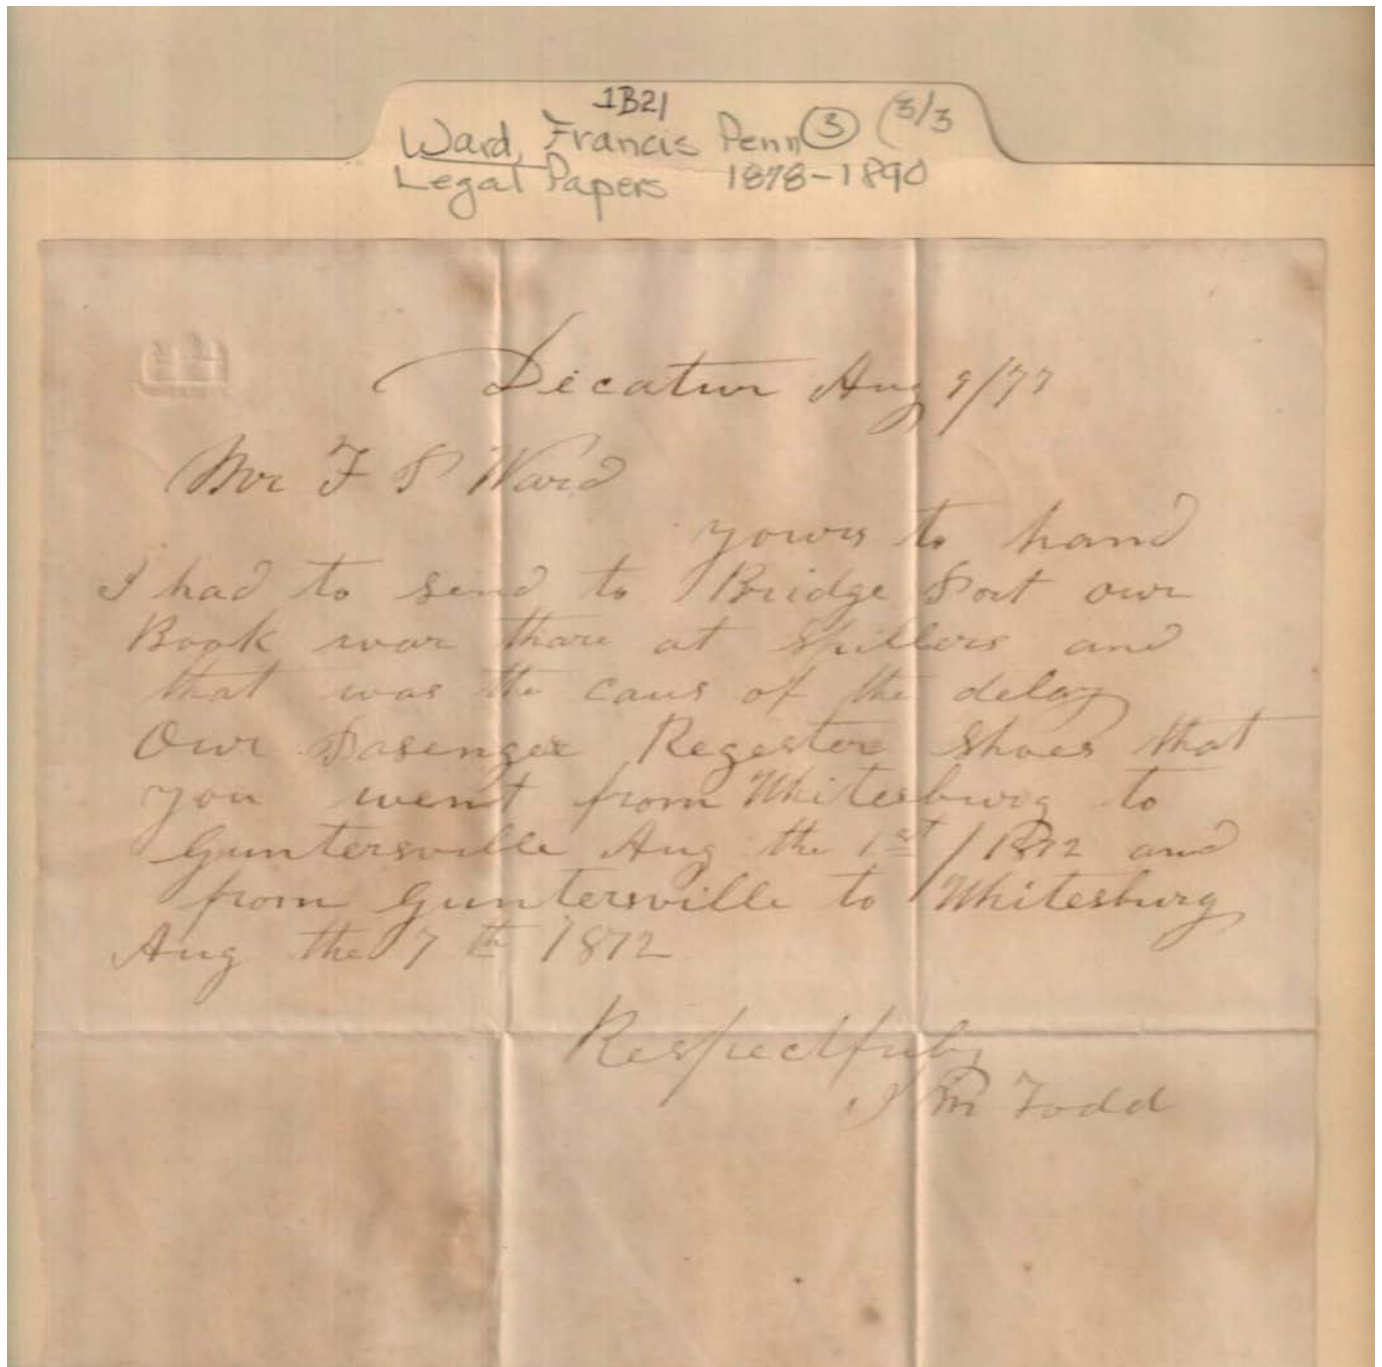 1B21
Ward, Francis Penn 3 (3/3
Legal Papers 1878-1890
Decatur Aug 9/77
Mr F P Ward
yours to hand
I had to send to Bridge Port our
Book war thare at Spillers and
that was the caus of the delay
Our Pasenger Regester Shoes that
you went from Whitesburg to
Guntersville Aug the 1st / 1872 and
from Guntersville to Whitesburg
Aug the 7th 1872
Respectfuly
J M Todd